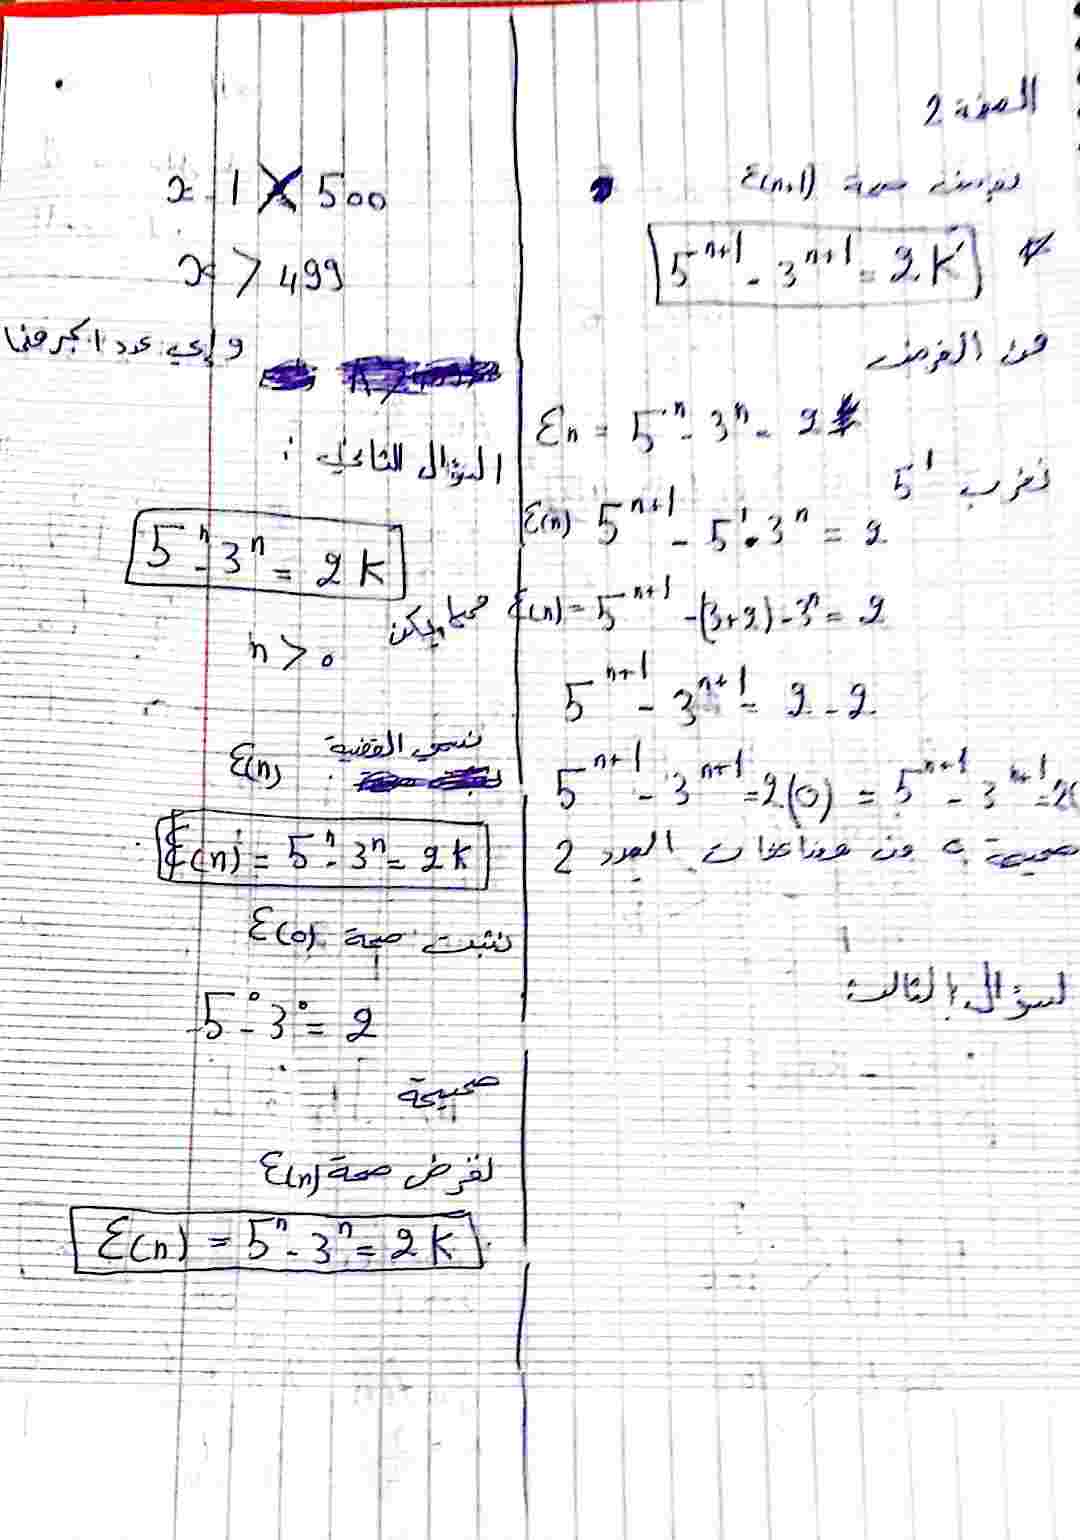 الصفحة 2
x - 1 > 500
x > 499
و اي عدد اكبر منها
السؤال الثاني :
5ⁿ - 3ⁿ = 2k
مهما يكن
n > 0
نسمي القضية E(n)
E(n) = 5ⁿ - 3ⁿ = 2k
نثبت صحة E(0)
5⁰ - 3⁰ = 2
صحيحة
نفرض صحة E(n)
E(n) = 5ⁿ - 3ⁿ = 2k
صحة E(n+1)
5ⁿ⁺¹ - 3ⁿ⁺¹ = 2k
من الفرض
En = 5ⁿ - 3ⁿ = 2
نضرب 5¹
E(n) 5ⁿ⁺¹ - 5¹·3ⁿ = 2
E(n) = 5ⁿ⁺¹ - (3+2) - 3ⁿ = 2
5ⁿ⁺¹ - 3ⁿ⁺¹ = 2 - 2
5ⁿ⁺¹ - 3ⁿ⁺¹ = 2(0) = 5ⁿ⁺¹ - 3ⁿ⁺¹ = 2(
صحيحة من مضاعفات العدد 2
لسؤال الثالث